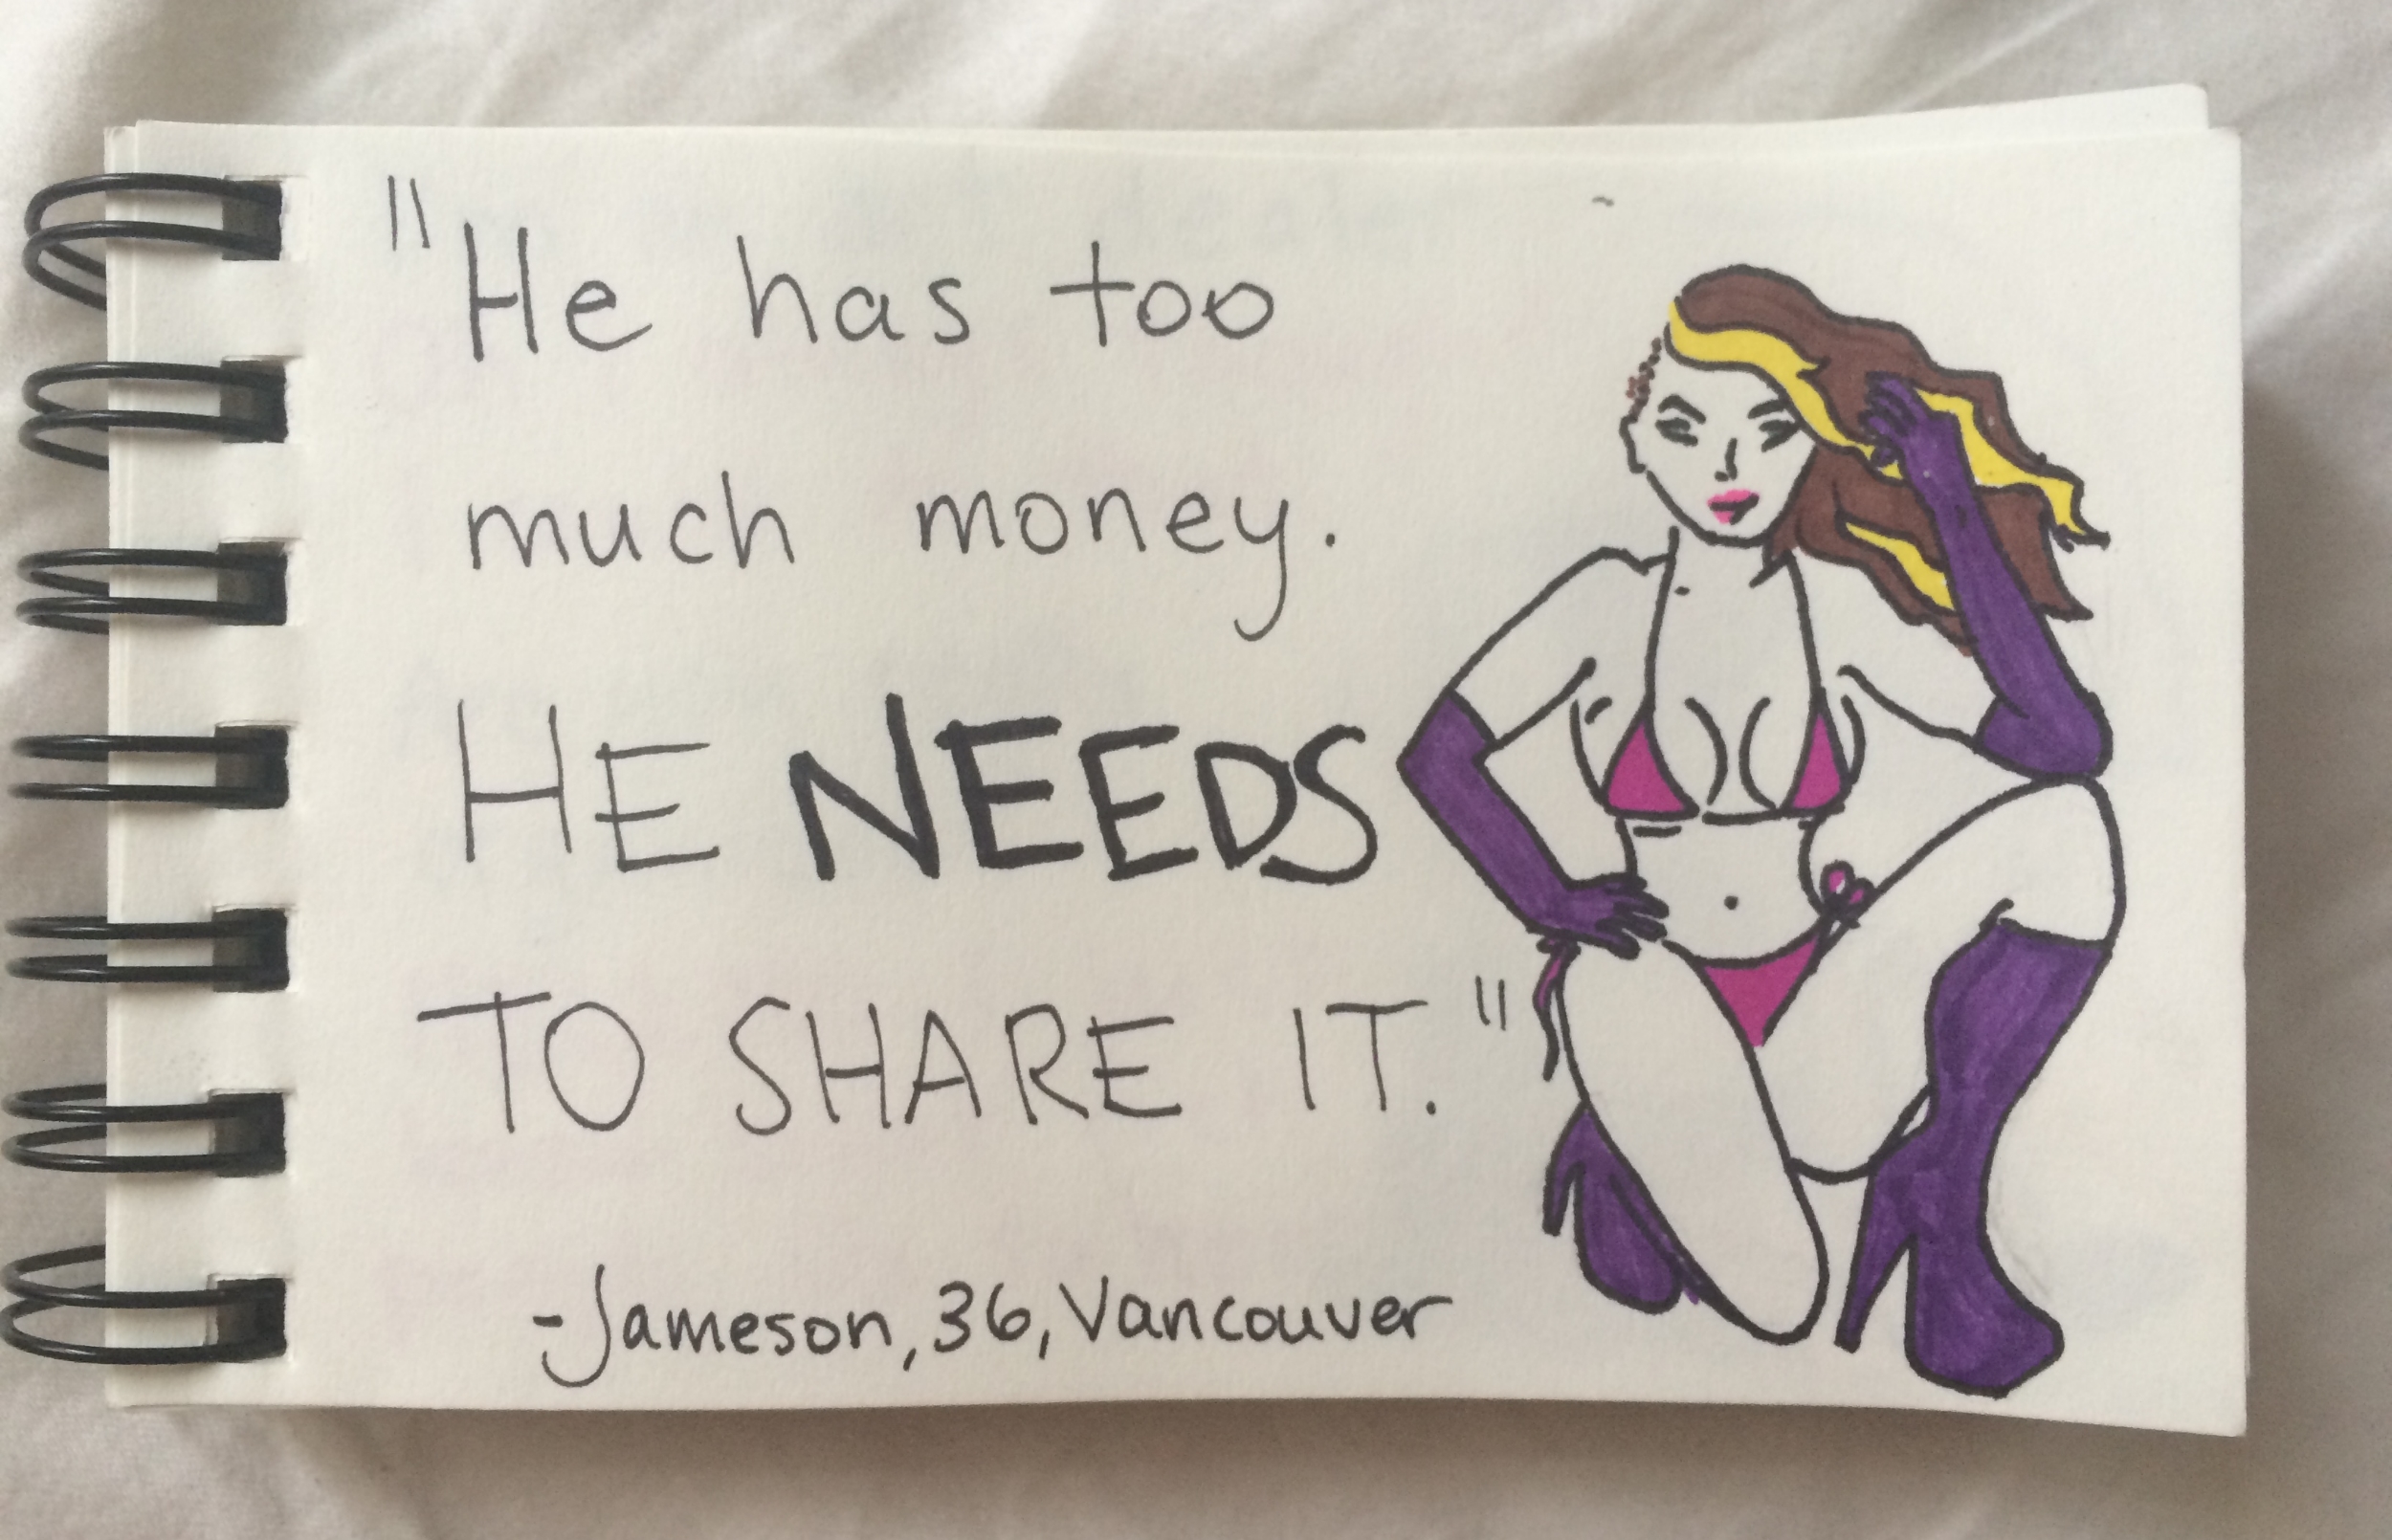 "He has too
much money.
HE NEEDS
TO SHARE IT."
-Jameson, 36, Vancouver